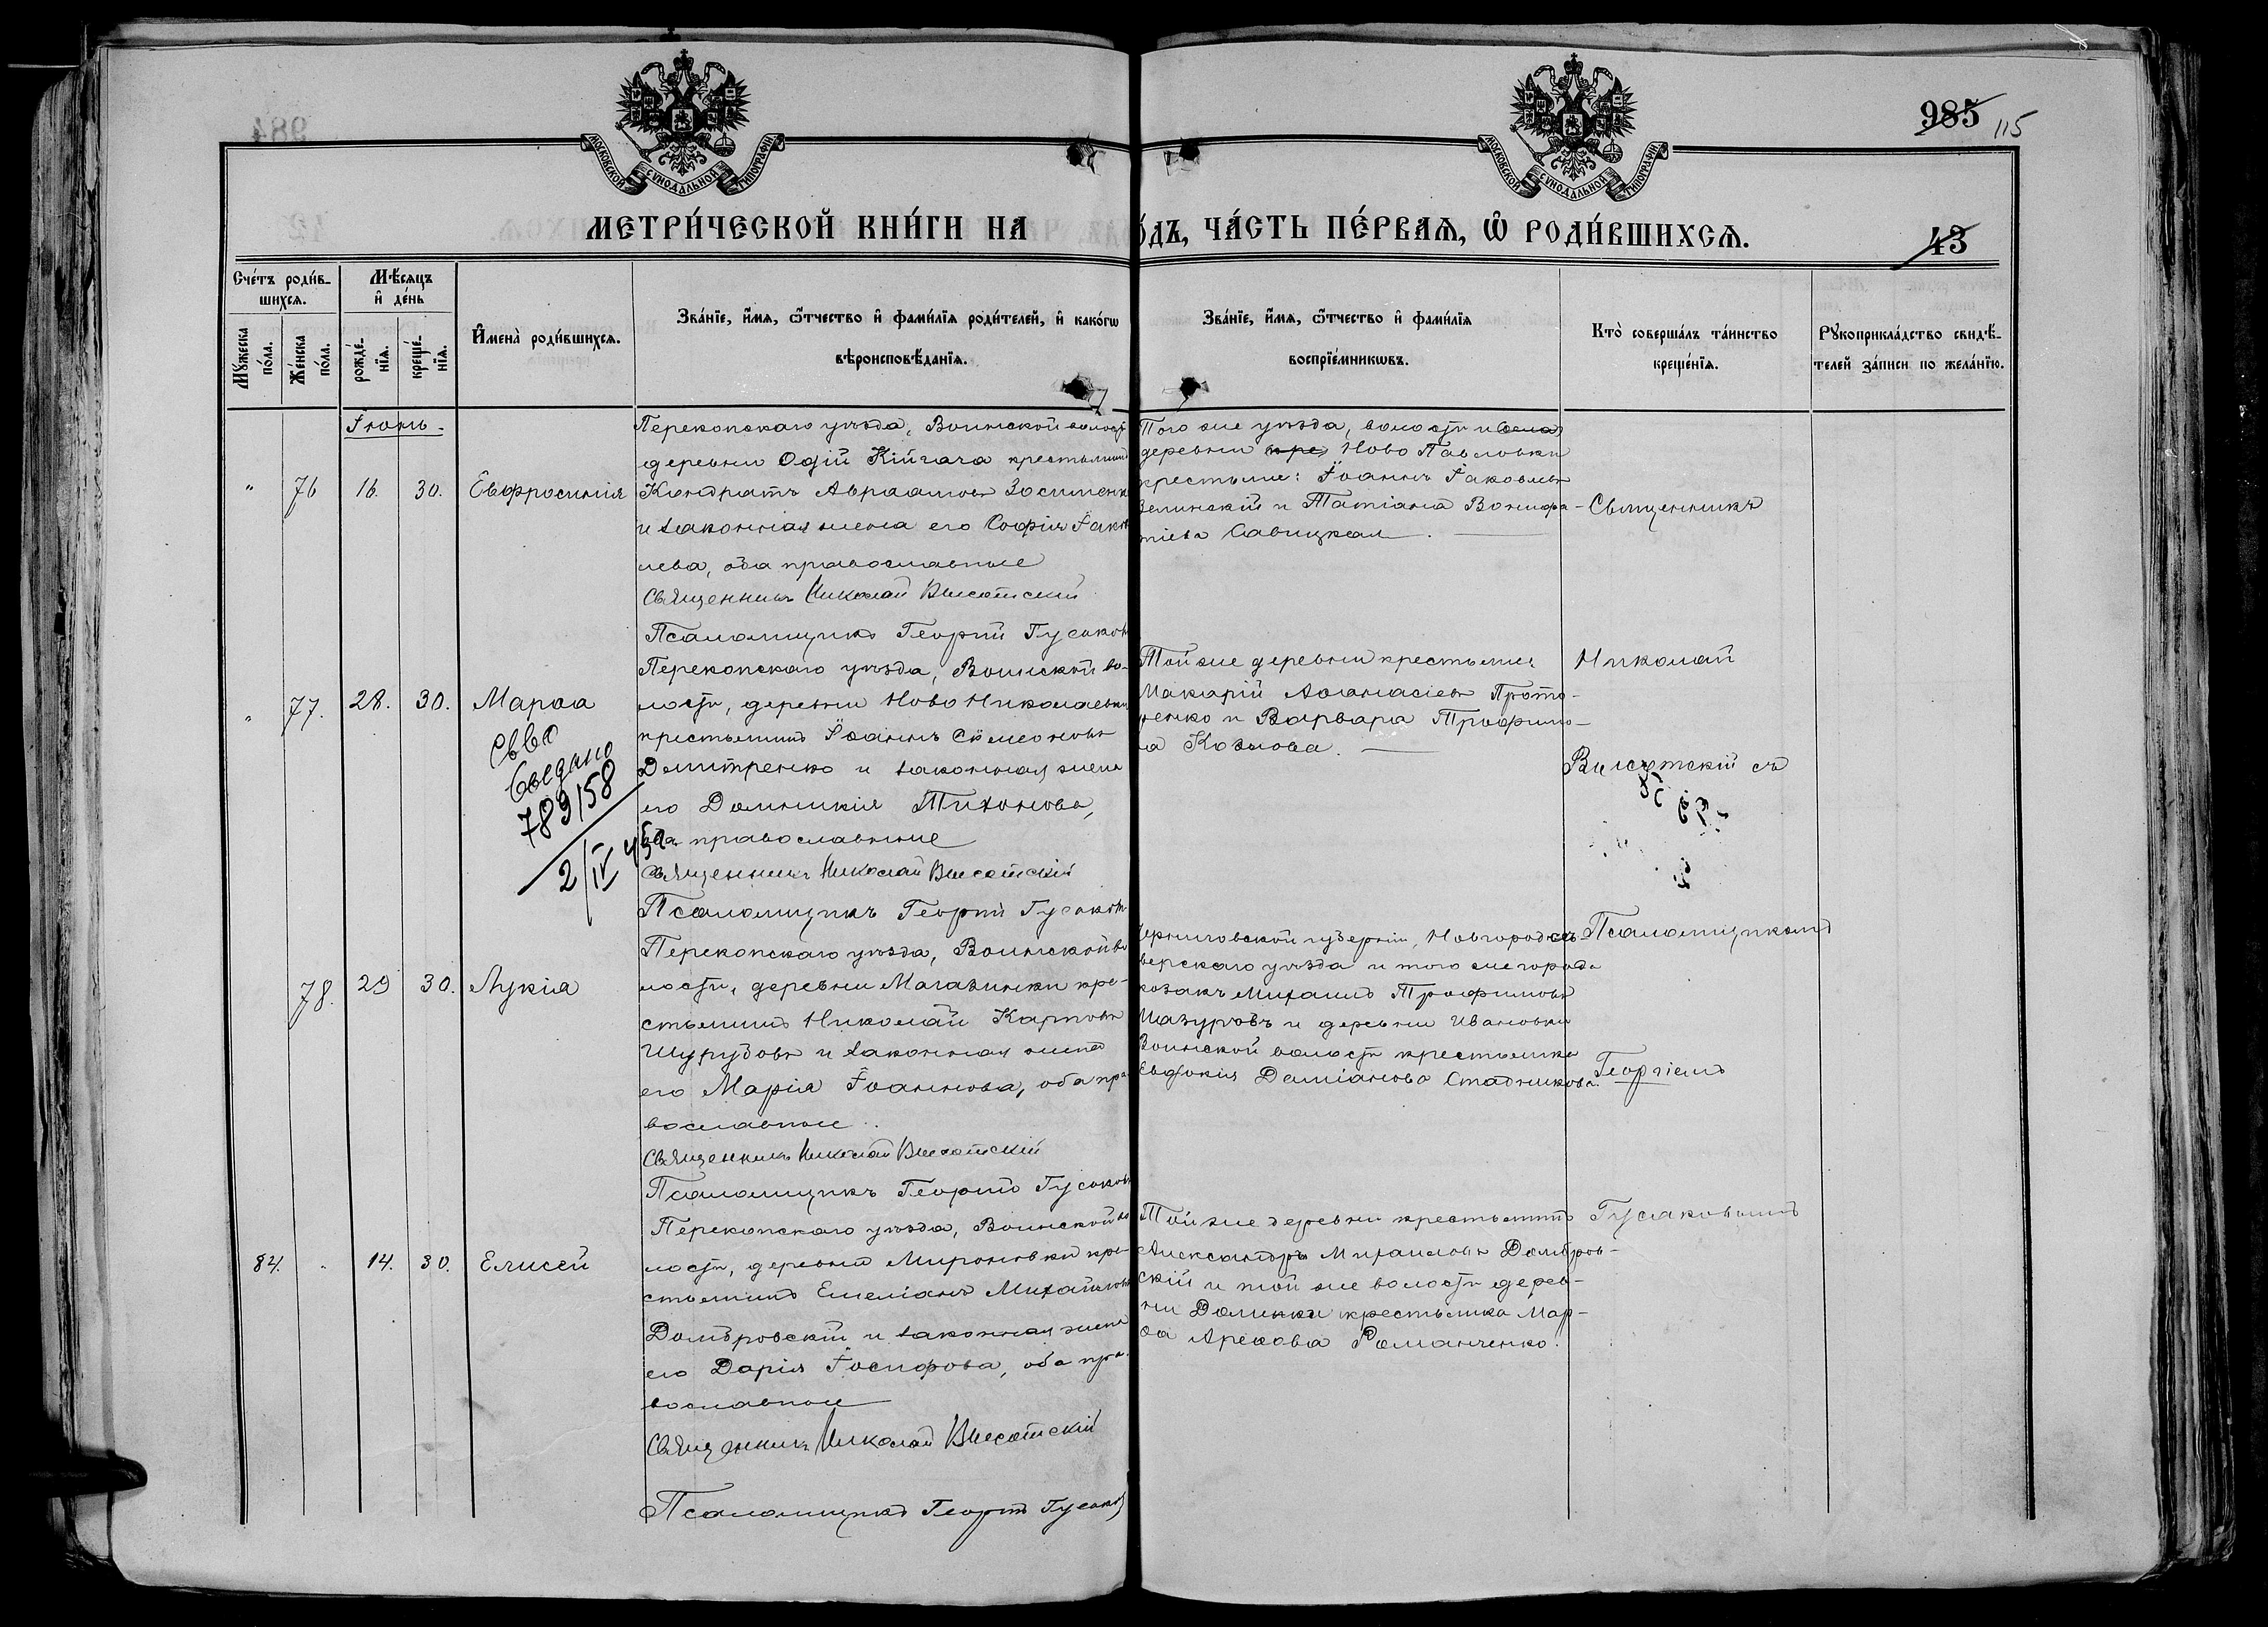 985 115
МОСКОВСКОЙ СѴНОДАЛЬНОЙ ТИПОГРАФІИ
МОСКОВСКОЙ СѴНОДАЛЬНОЙ ТИПОГРАФІИ
МЕТРИ́ЧЕСКОЙ КНИ́ГИ НА
О́ДЪ, ЧА́СТЬ ПЕ́РВАѦ, Ѡ РОДИ́ВШИХСѦ.
43
Сче́тъ роди́в-
шихсѧ.
Мꙋжеска
по́ла.
Же́нска
по́ла.
Мѣ́сѧцъ
и҆ де́нь
рожде́-
нїѧ.
креще́-
нїѧ.
И҆мена̀ роди́вшихсѧ.
Зва́нїе, и҆́мѧ, ѻ҆́тчество и҆ фами́лїѧ роди́телей, и҆ како́гѡ
вѣроисповѣ́данїѧ.
Зва́нїе, и҆́мѧ, ѻ҆́тчество и҆ фами́лїѧ
воспрїе́мникѡвъ.
Кто̀ соверша́лъ та́инство
креще́нїѧ.
Рꙋкоприкла́дство свидѣ́-
телей за́писи по жела́нїю.
Іюнь.
" 76 16. 30. Евфросинія
Перекопскаго уѣзда, Воинской волости
деревни Одій Кійгача крестьянинъ
Кондратъ Авраамовъ Зосименк
и законная жена его Софія Іаков
лева, оба православные
Священникъ Николай Высотскій
Псаломщикъ Георгій Гусаков
Того же уѣзда, волости и села
деревни кре Ново Павловки
крестьяне: Іоаннъ Іаковлевъ
Зелинскій и Татіана Вонифа-
тіева Савицкая.
Священникъ
" 77. 28. 30. Марѳа
789/58
2/IV
Перекопскаго уѣзда, Воинской во-
лости, деревни Ново Николаевки
крестьянинъ Іоаннъ Сѵмеоновъ
Дмитренко и законная жена
его Домникія Тихонова,
оба православные
Священникъ Николай Высотскій
Псаломщикъ Георгій Гусаков
Той же деревни крестьяне
Макарій Аѳанасіевъ Прото-
ренко и Варвара Трофимо-
ва Козлова.
Николай
Высотскій съ
78. 29 30. Лукія
Перекопскаго уѣзда, Воинской во
лости, деревни Магазинки кре-
стьянинъ Николай Карповъ
Шурубовъ и законная жена
его Марія Іоаннова, оба пра
вославные.
Священникъ Николай Высотскій
Псаломщикъ Георгій Гусаков
Черниговской губерніи, Новгородсѣ-
верскаго уѣзда и того же города
козакъ Михаилъ Трофимовъ
Мазуровъ и деревни Ивановки
Воинской волости крестьянка
Евдокія Даміанова Стадникова.
Псаломщикомъ
Георгіемъ
84. " 14. 30. Елисей
Перекопскаго уѣзда, Воинской во
лости, деревни Мироновки кре-
стьянинъ Емеліанъ Михайловъ
Домбровскій и законная жена
его Дарія Іосифова, оба пра-
вославные
Священникъ Николай Высотскій
Псаломщикъ Георгій Гусаков
Той же деревни крестьянинъ
Александръ Михаиловъ Домбров-
скій и той же волости дерев-
ни Долинки крестьянка Мар-
ѳа Романченко.
Гусаковымъ